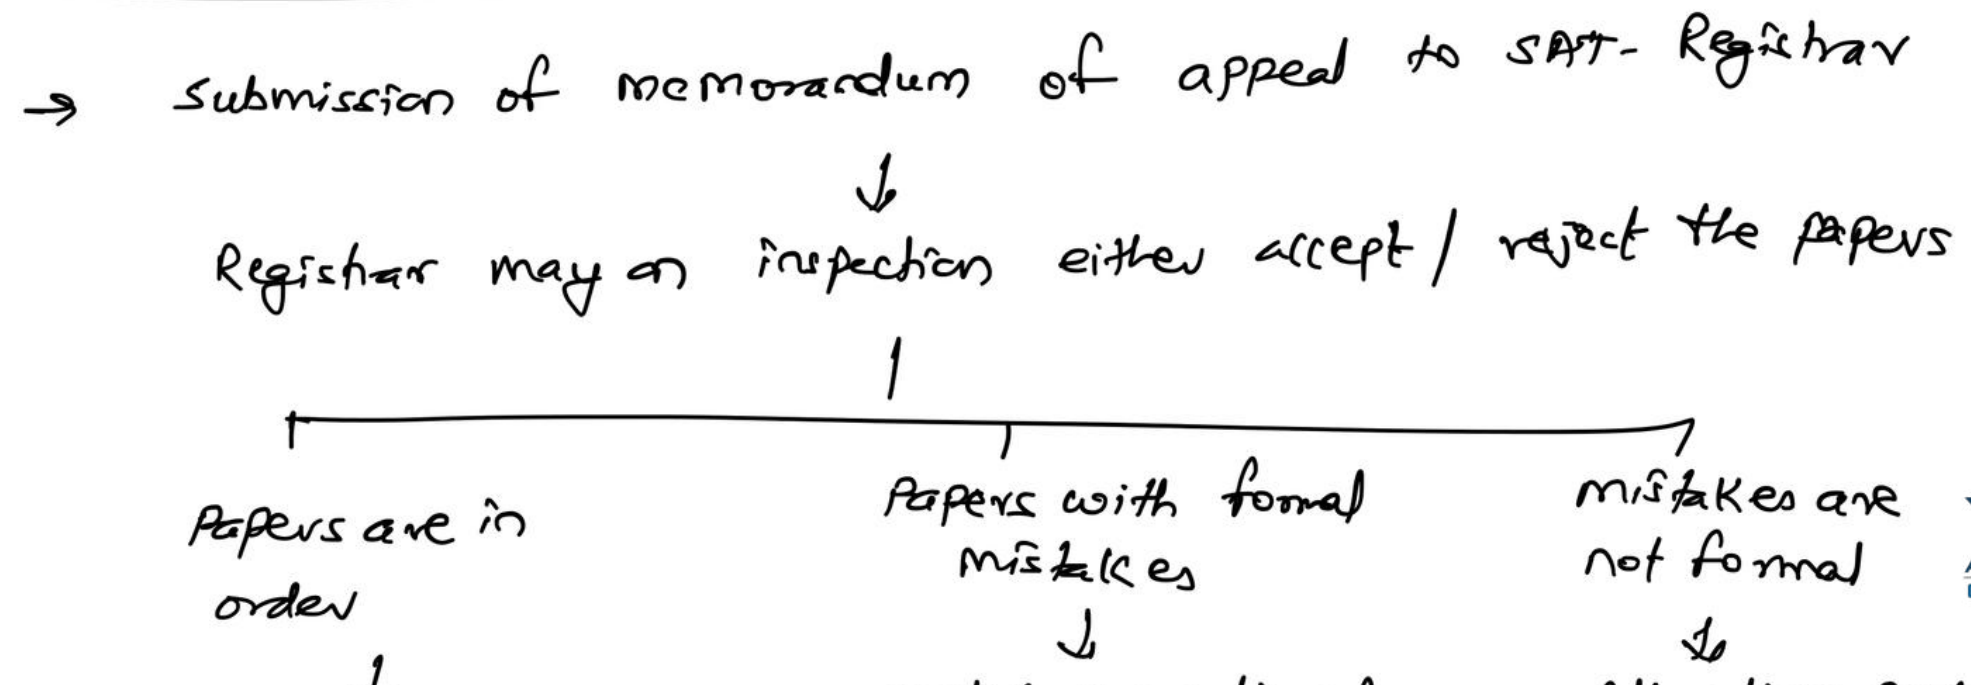 → Submission of memorandum of appeal to SAT- Registrar
Registrar may on inspection either accept / reject the papers
Papers are in
order
Papers with formal
mistakes
mistakes are
not formal